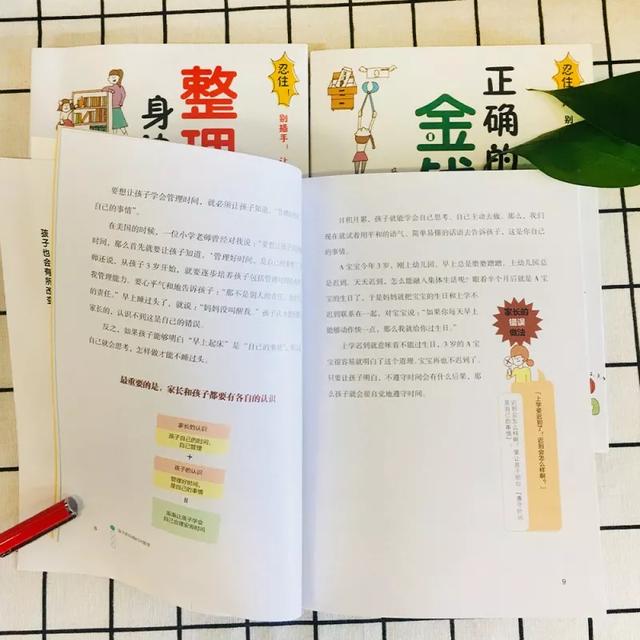 忍住！
整理
别插手，让
身
忍住！
正确的
金钱
别
孩子也会有所改变
要想让孩子学会管理时间，就必须让孩子知道，“管理时间是
自己的事情”。
在美国的时候，一位小学老师曾经对我说：“要想让孩子
时间，那么首先就要让孩子知道，‘管理好时间，是自己的事情’。”
师还说，从孩子3岁开始，就要逐步培养孩子包括管理时间
我管理能力。要心平气和地告诉孩子：“那不是别人的责任，
的责任。”早上睡过头了，就说：“妈妈没叫醒我。”孩子认为
家长的，认识不到这是自己的错误。
反之，如果孩子能够明白“早上起床”是“自己的事情”，
自己就会思考，怎样做才能不睡过头。
最重要的是，家长和孩子都要有各自的认识
家长的认识
孩子自己的时间，
自己管理
+
孩子的认识
管理好时间，
是自己的事情
=
渐渐让孩子学会
自己管理安排时间
8
日积月累，孩子就能学会自己思考、自己主动去做。那么，我们
现在就试着用平和的语气、简单易懂的话语去告诉孩子，这是你自己
的事情。
A宝宝今年3岁，刚上幼儿园，早上总是磨磨蹭蹭，上幼儿园总
是迟到。天天迟到，怎么能融入集体生活呢？眼看半个月后就是A宝
宝的生日了，于是妈妈就把宝宝的生日和上学不
迟到联系在一起，对宝宝说：“如果你每天早上
能够动作快一点，那么我就给你过生日。”
上学迟到就意味着不能过生日，3岁的A宝
宝很容易就明白了这个道理。宝宝再也不迟到了。
只要让孩子明白，不遵守时间会有什么后果，那
么孩子就会很自觉地遵守时间。
家长的
错误
做法
“上学要迟到了！迟到会怎么样啊？”
迟到会怎么样啊，要让孩子明白，“遵守时间
是自己的事情”。
9